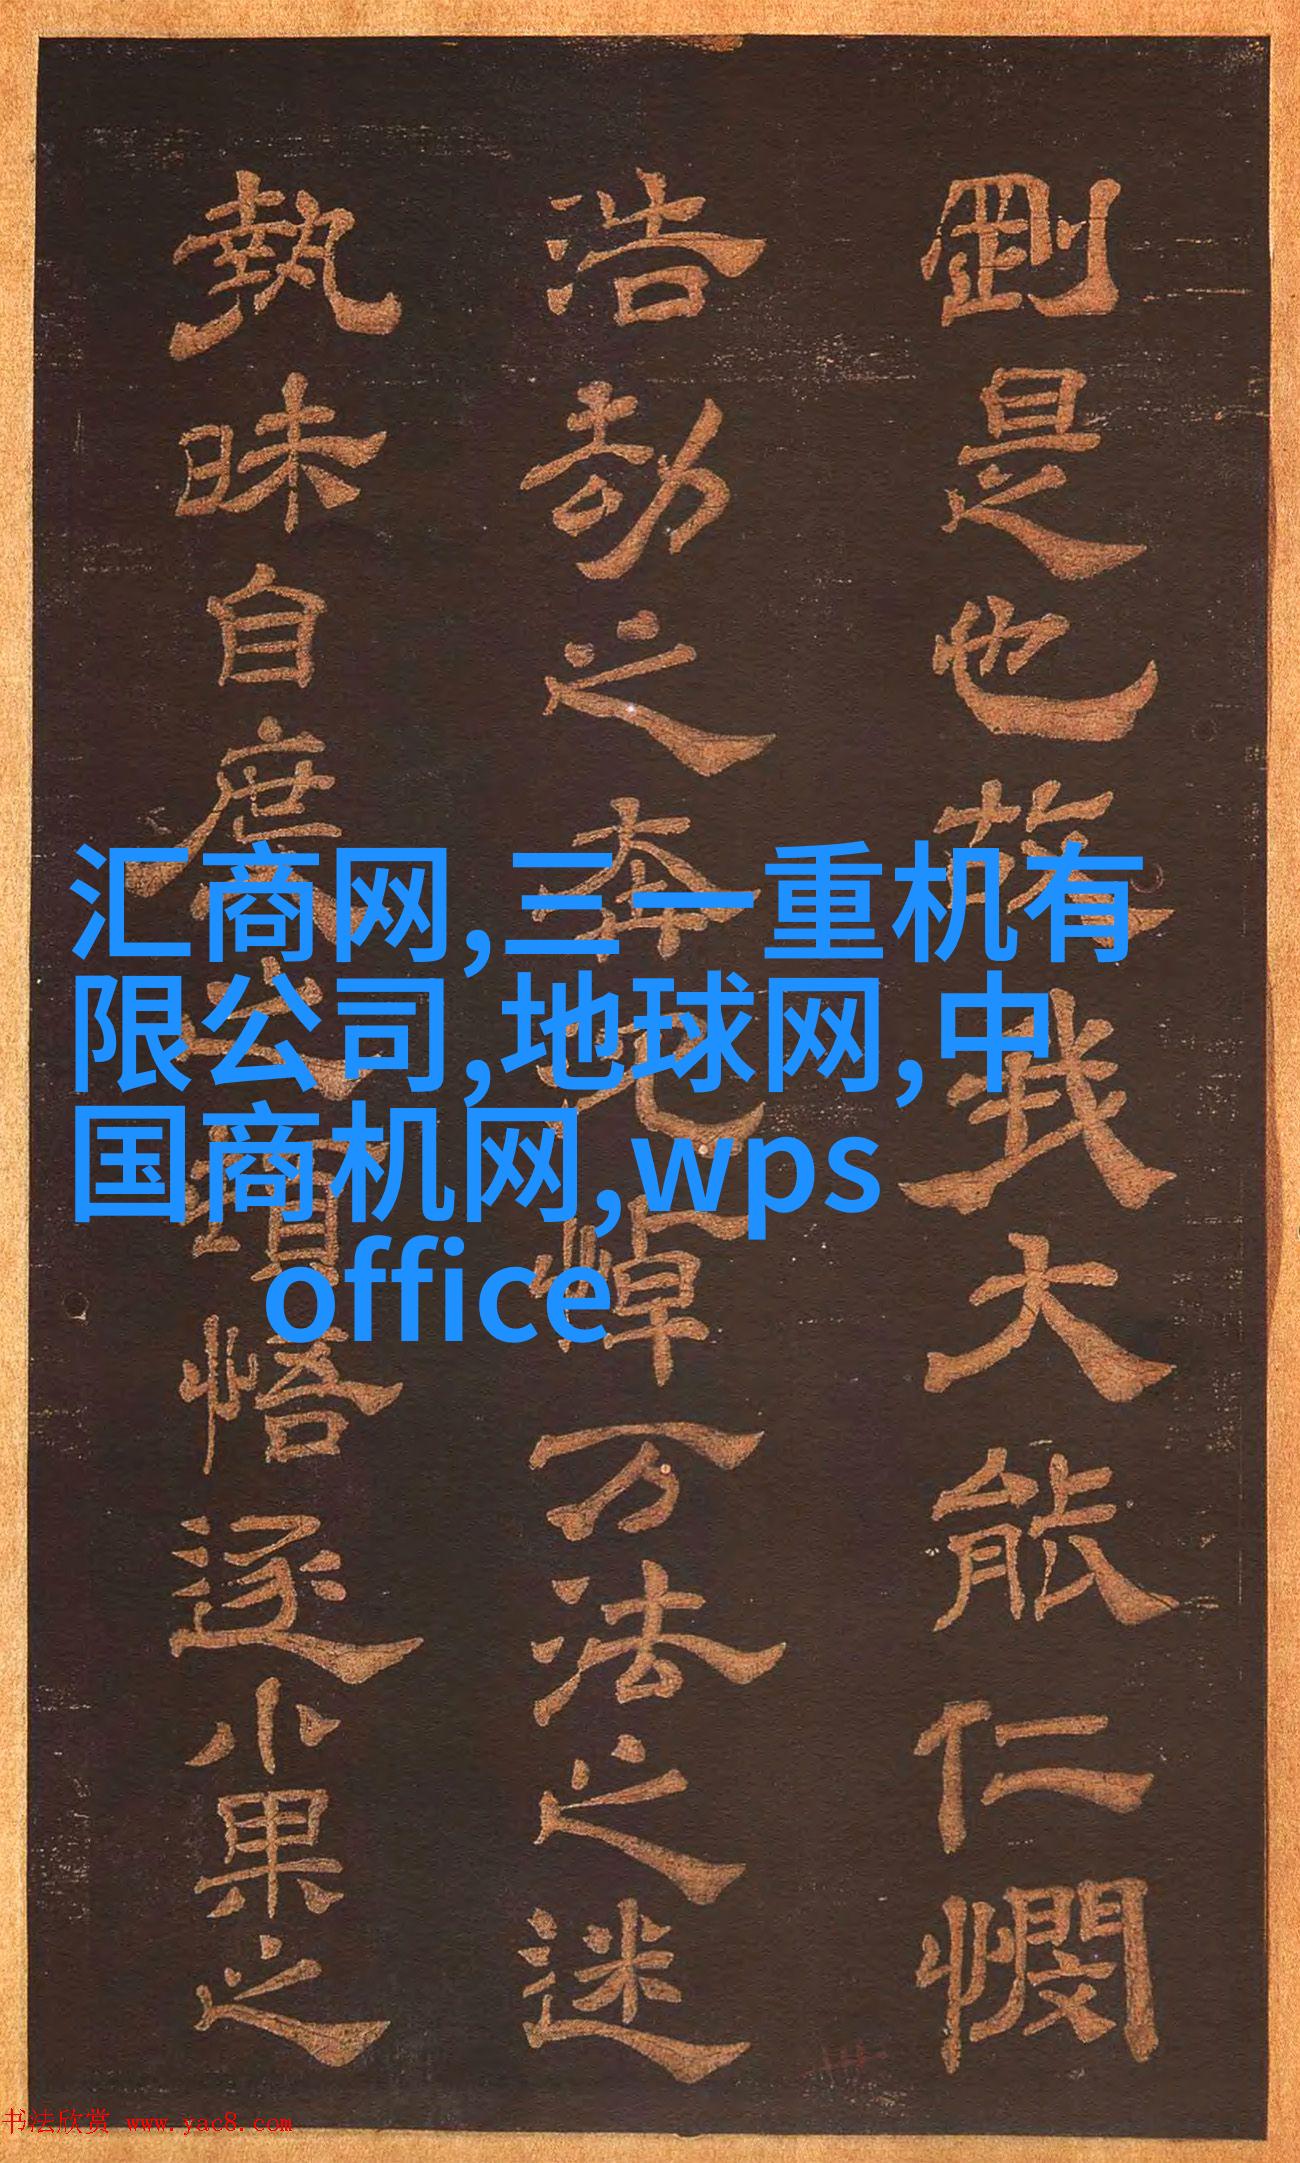 剛是也我大能仁憫
浩劫之奔悼万法之迷
執昧自悟逐小果之
汇商网,三一重机有
限公司,地球网,中
国商机网,wps
office
书法欣赏 www.yac8.com